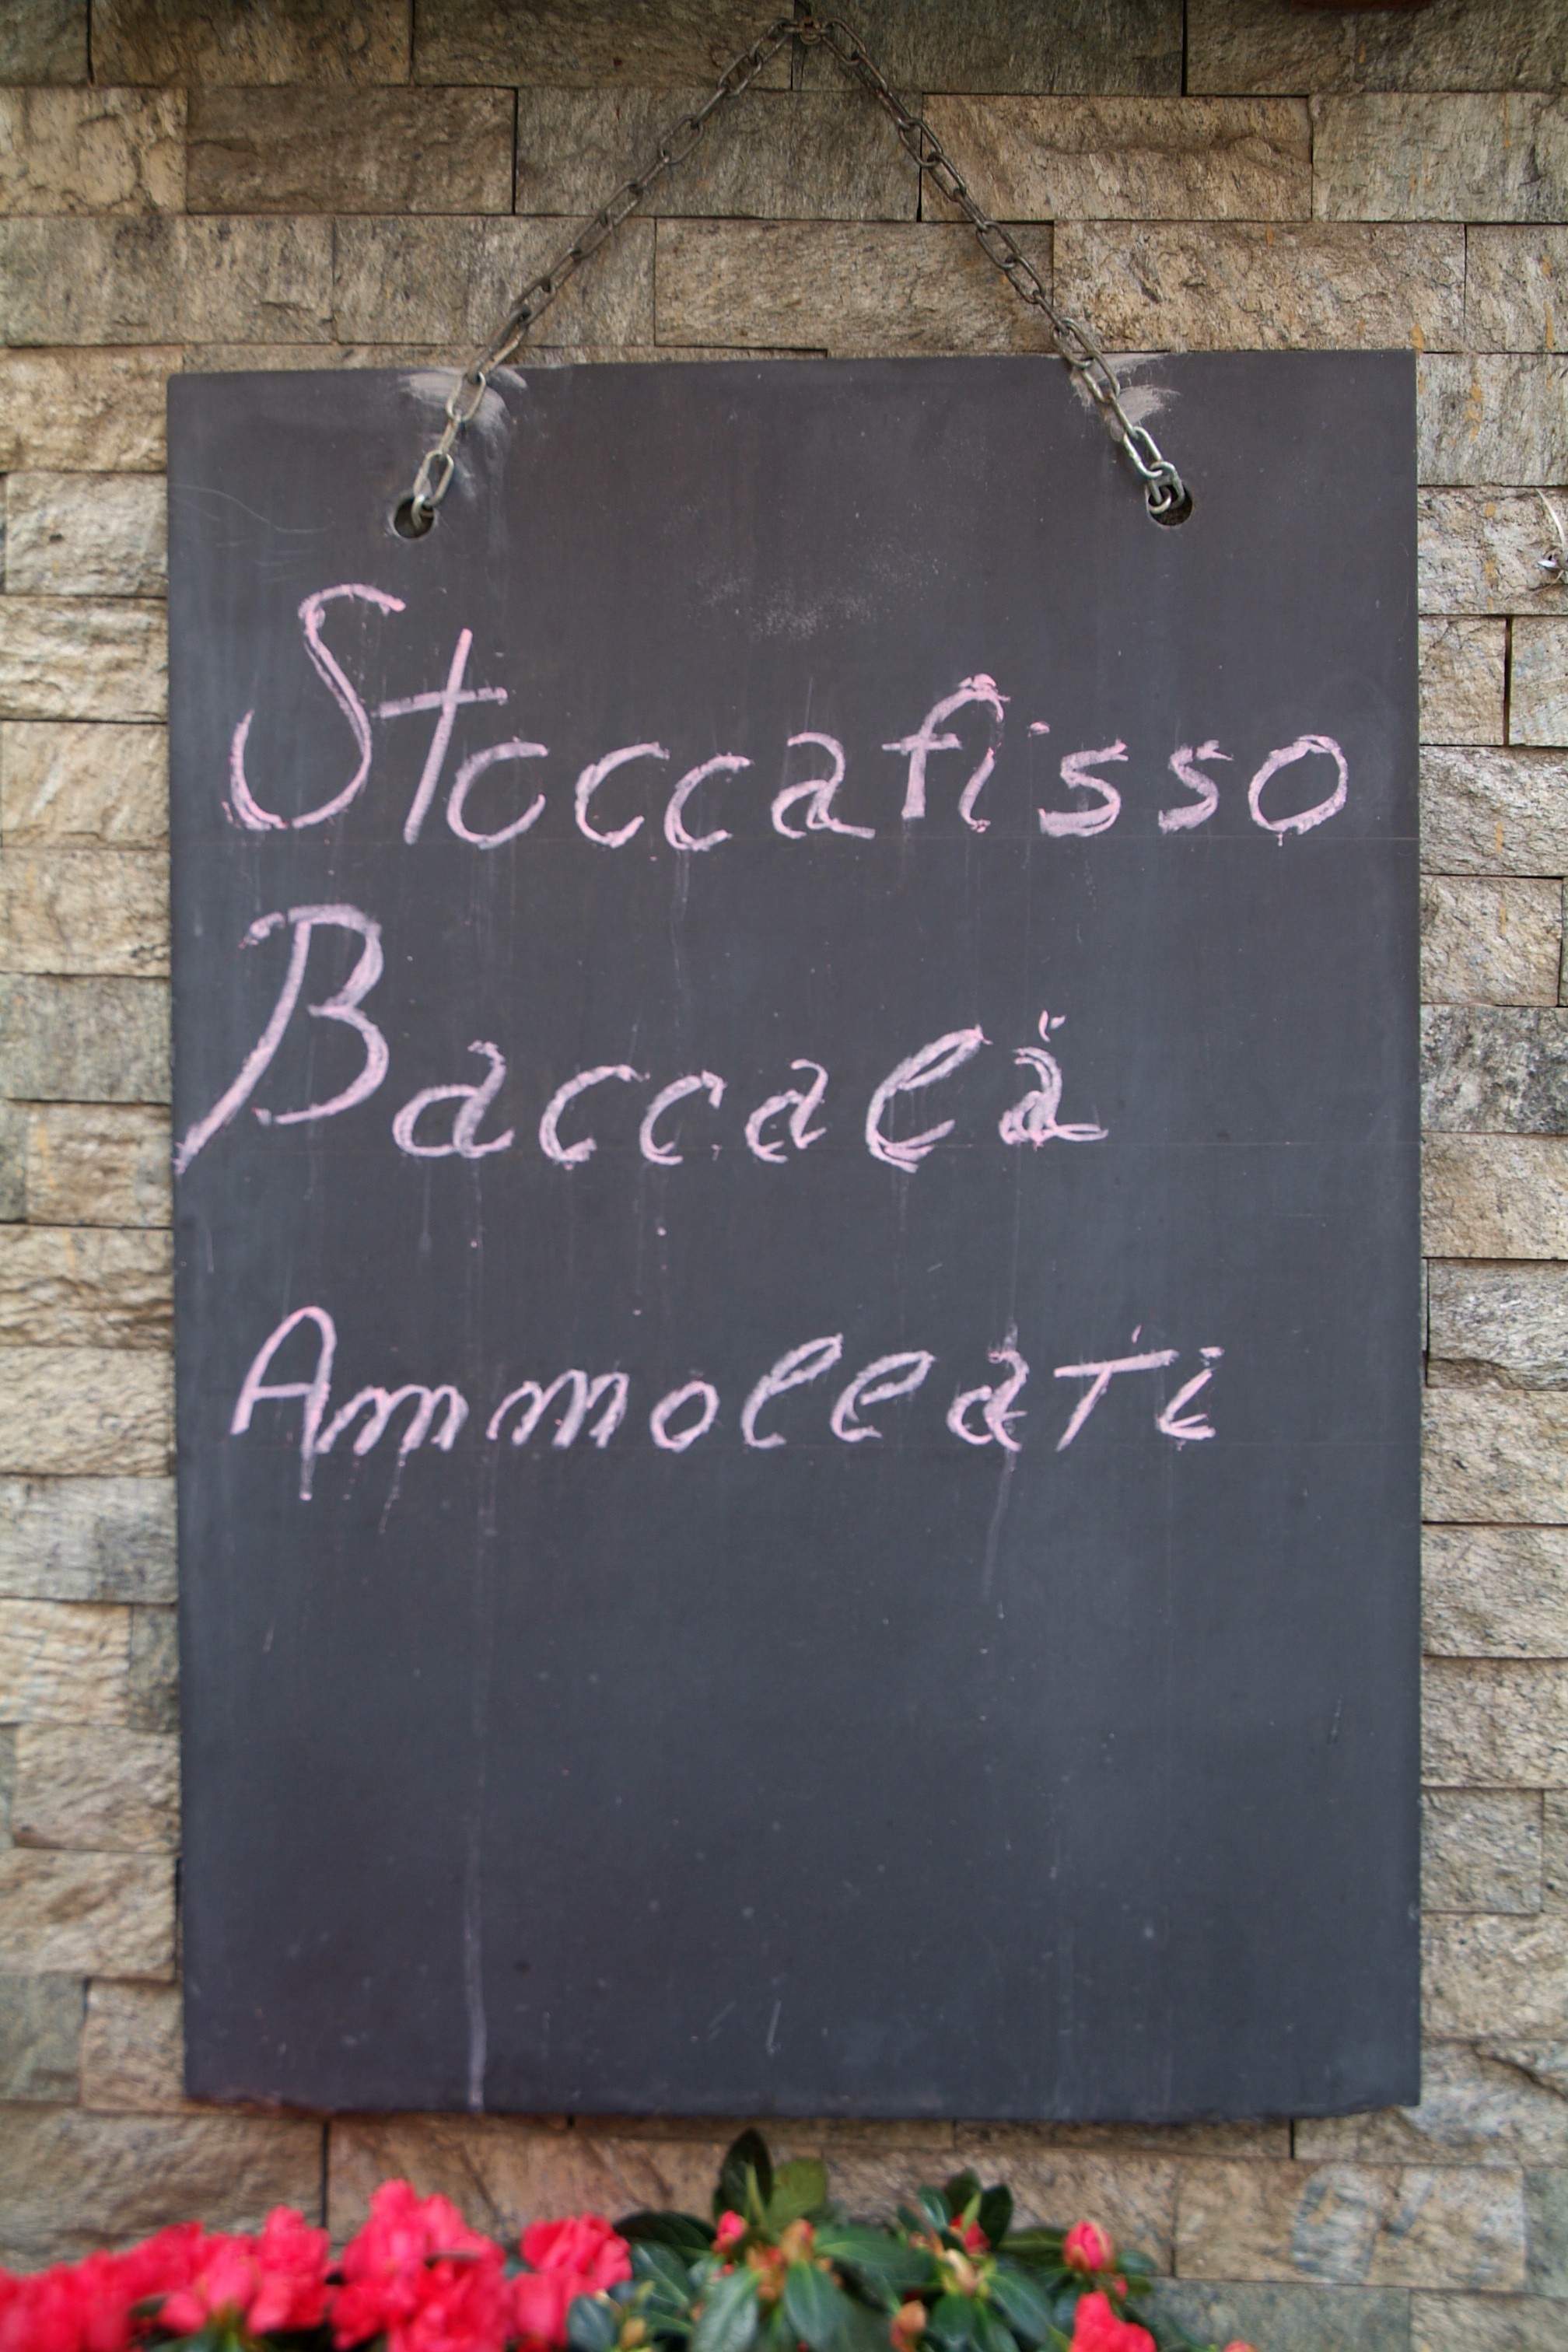 Stoccafisso
Baccalà
Ammollati